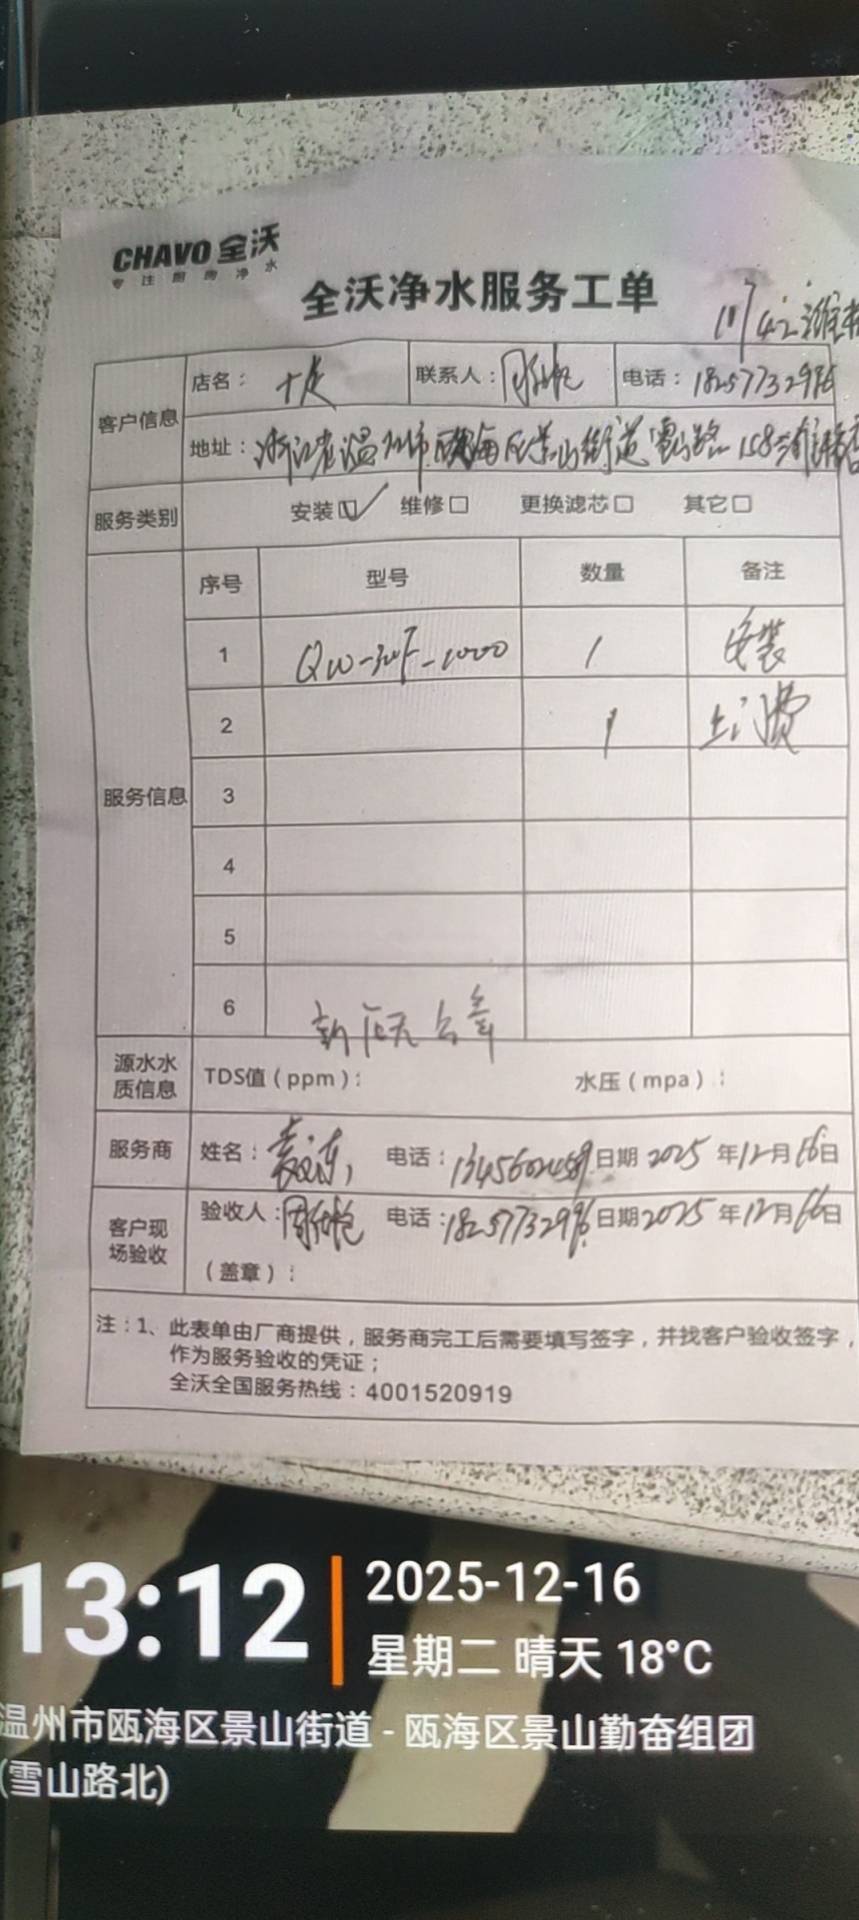 CHAVO 全沃
专注厨房净水
全沃净水服务工单
客户信息 店名： 联系人： 电话：18257732996
地址：浙江省温州市瓯海区景山街道雪山路158
服务类别 安装☑ 维修□ 更换滤芯□ 其它□
服务信息 序号 型号 数量 备注
1 QW-3UF-1000 1 安装
2 1 上门费
3
4
5
6
源水水质信息 TDS值（ppm）： 水压（mpa）：
服务商 姓名： 电话： 日期 2025 年 12 月 16 日
客户现场验收 验收人： 电话：18257732996 日期 2025 年 12 月 16 日
（盖章）：
注：1、此表单由厂商提供，服务商完工后需要填写签字，并找客户验收签字，
作为服务验收的凭证；
全沃全国服务热线：4001520919
13:12
2025-12-16
星期二 晴天 18°C
温州市瓯海区景山街道 - 瓯海区景山勤奋组团
(雪山路北)